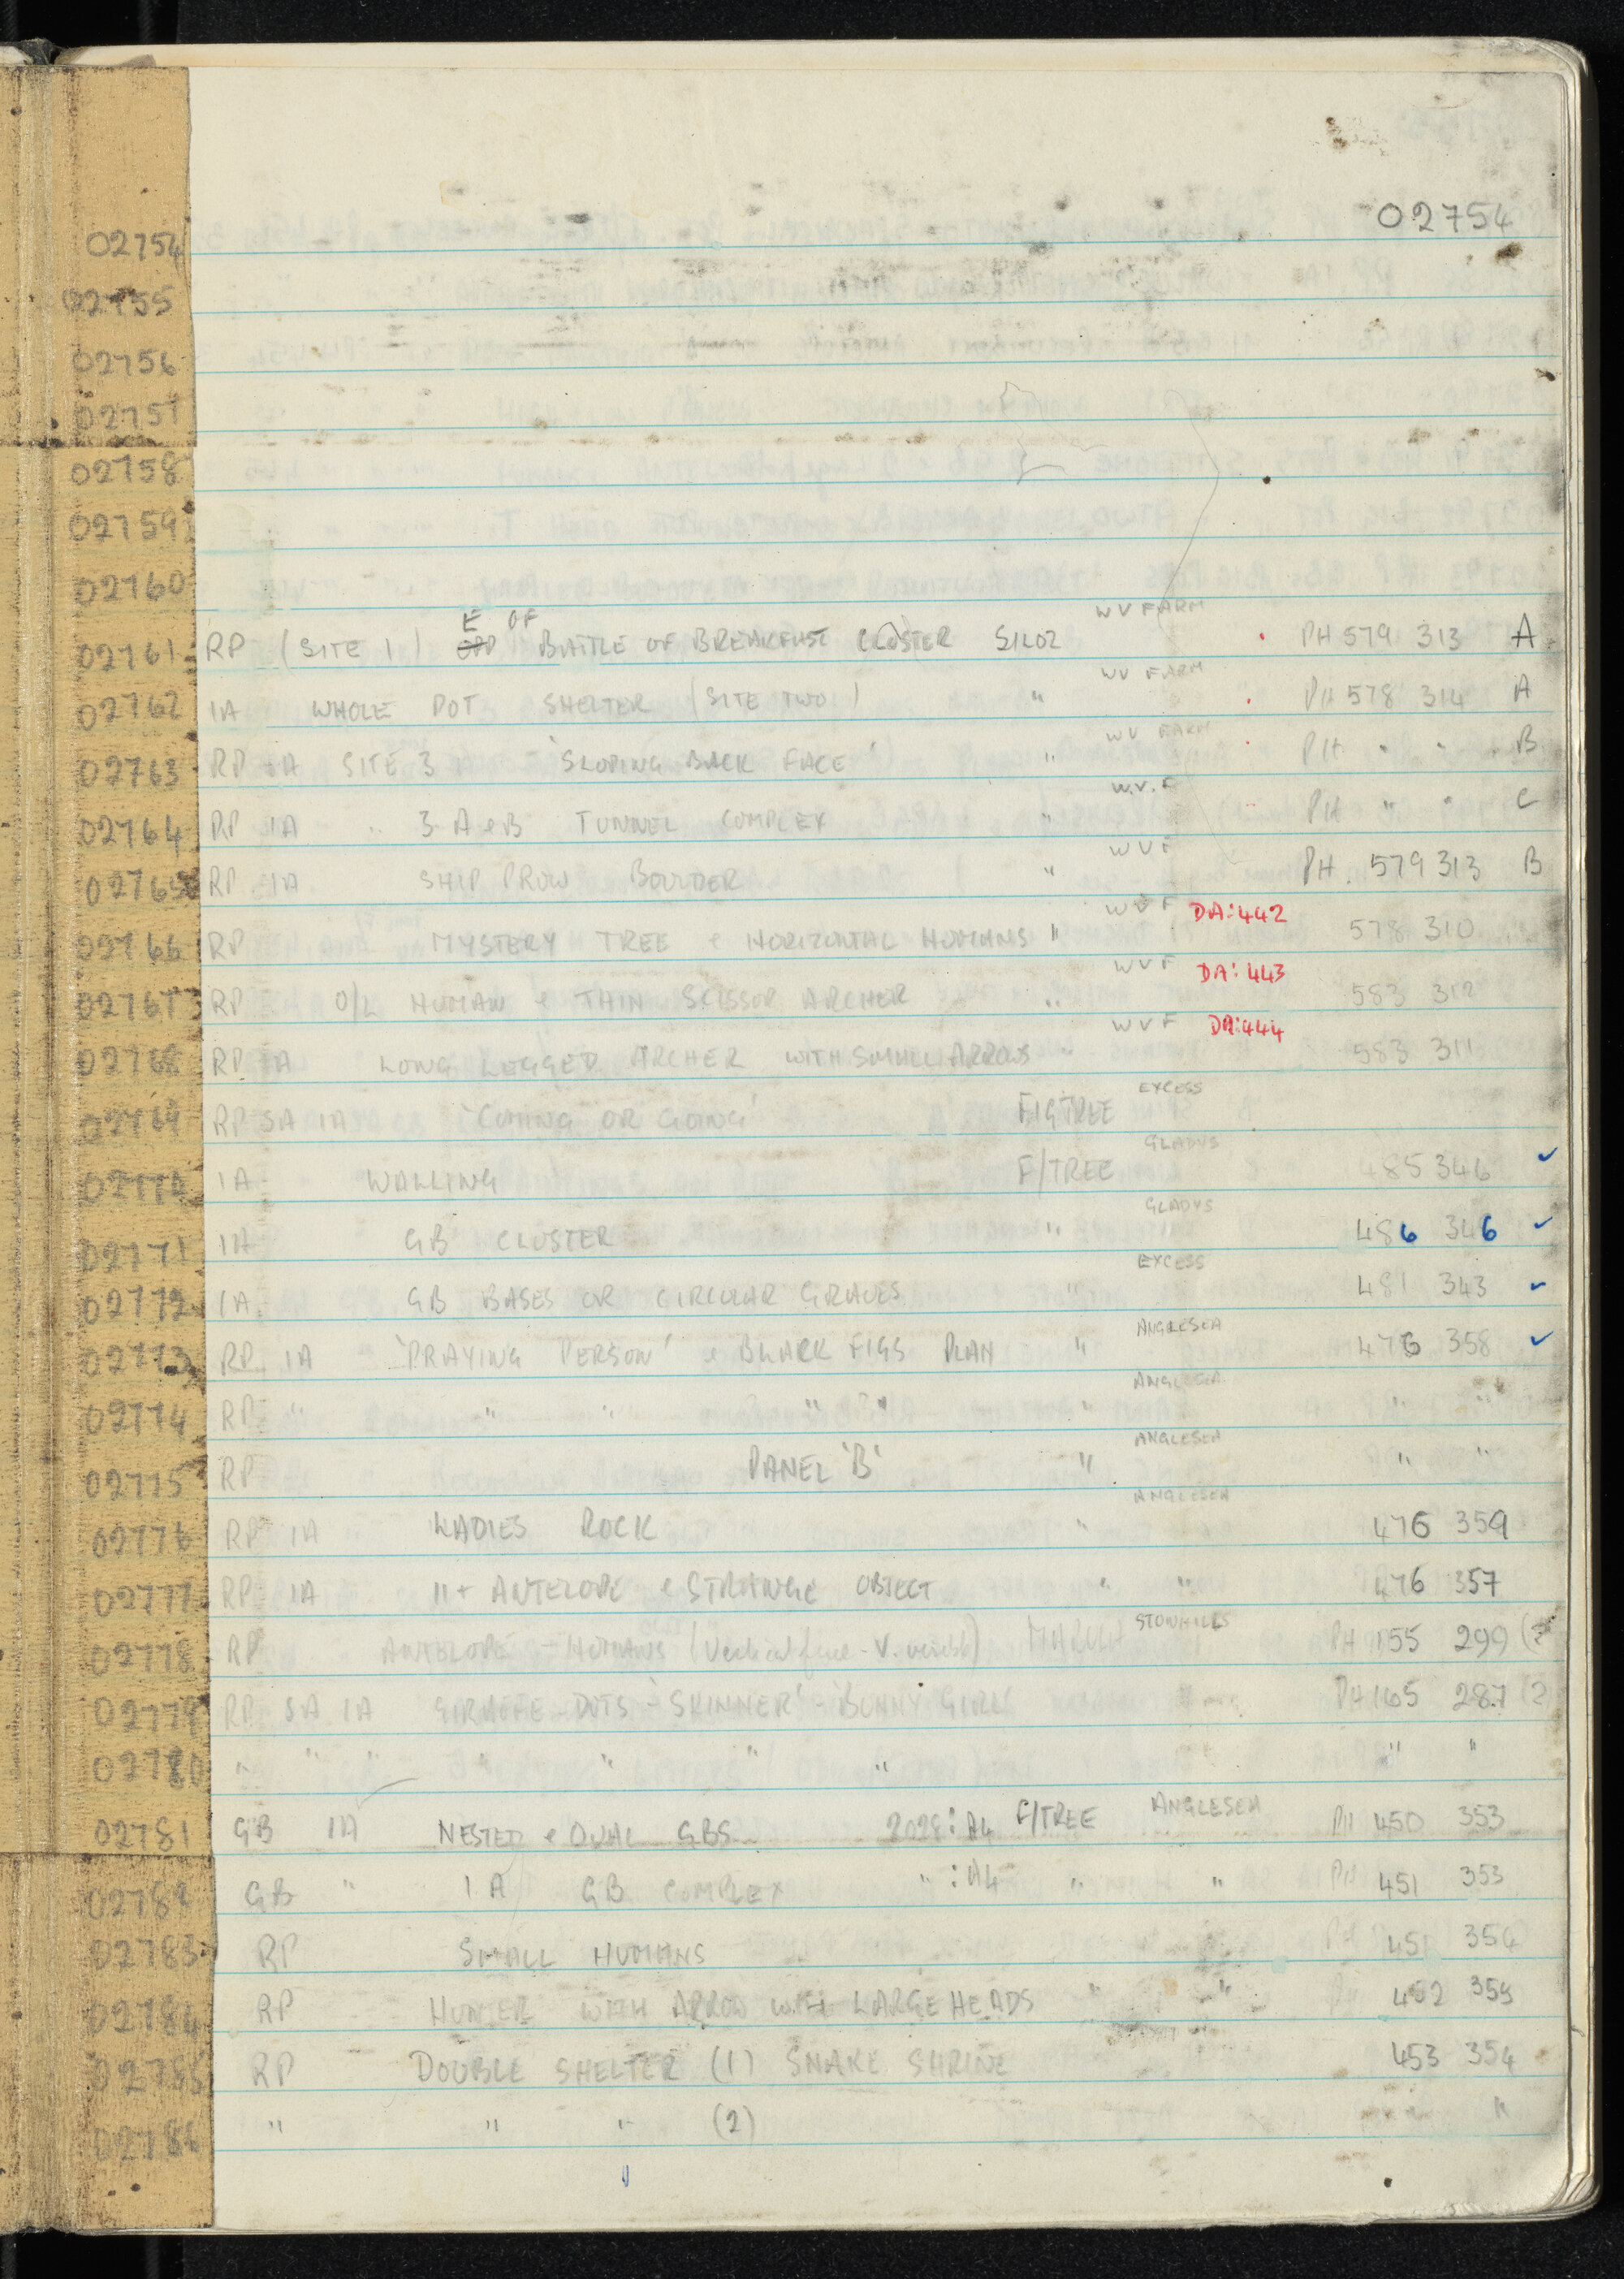 02754
02754
02755
02756
02757
02758
02759
02760
E OF WV FARM
02761 RP (SITE 1) OPP BATTLE OF BREAKFAST CLUSTER SILOZ PH 579 313 A
WV FARM
02762 IA WHOLE POT SHELTER (SITE TWO) " PH 578 314 A
WV FARM
02763 RP IA SITE 3 'SLOPING BACK FACE' " PH " " B
W.V.F
02764 RP IA " 3 A & B TUNNEL COMPLEX " PH " " C
WVF
02765 RP IA SHIP PROW BOULDER " PH. 579 313 B
WVF DA:442
02766 RP MYSTERY TREE & HORIZONTAL HUMANS " 578 310
WVF DA:443
02767 RP O/L HUMAN & THIN SCISSOR ARCHER " 583 312
WVF DA:444
02768 RP IA LONG LEGGED ARCHER WITH SMALL ARROWS " 583 311
EXCESS
02769 RP SA IA 'COMING OR GOING' FIGTREE
GLADYS
02770 IA WALLING F/TREE 485 346 ✓
GLADYS
02771 IA GB CLUSTER " 486 346 ✓
EXCESS
02772 IA GB BASES OR CIRCULAR GRAVES " 481 343 ✓
ANGLESEA
02773 RP IA 'PRAYING PERSON' & BLACK FIGS PLAN " 476 358 ✓
ANGLESEA
02774 RP " " " " " " " "
ANGLESEA
02775 RP PANEL 'B' " " "
ANGLESEA
02776 RP IA LADIES ROCK " 476 359
02777 RP IA 11+ ANTELOPE & STRANGE OBJECT " " 476 357
STONHILLS
02778 RP ANTELOPE - HUMANS (Vertical face - V. visible) MARULA PH 155 299 (2
02779 RP SA IA GIRAFFE - DOTS - 'SKINNER' - 'BUNNY GIRL' " PH 165 287 (2
02780 " " " " " " " " "
02781 GB IA NESTED & OVAL GBS 2028:A4 F/TREE ANGLESEA PH 450 353
02782 GB " IA GB COMPLEX " :A4 " " PH 451 353
02783 RP SMALL HUMANS " PH 451 354
02784 RP HUNTER WITH ARROW WITH LARGE HEADS " " 452 353
02785 RP DOUBLE SHELTER (1) SNAKE SHRINE 453 354
02786 " " " (2) "